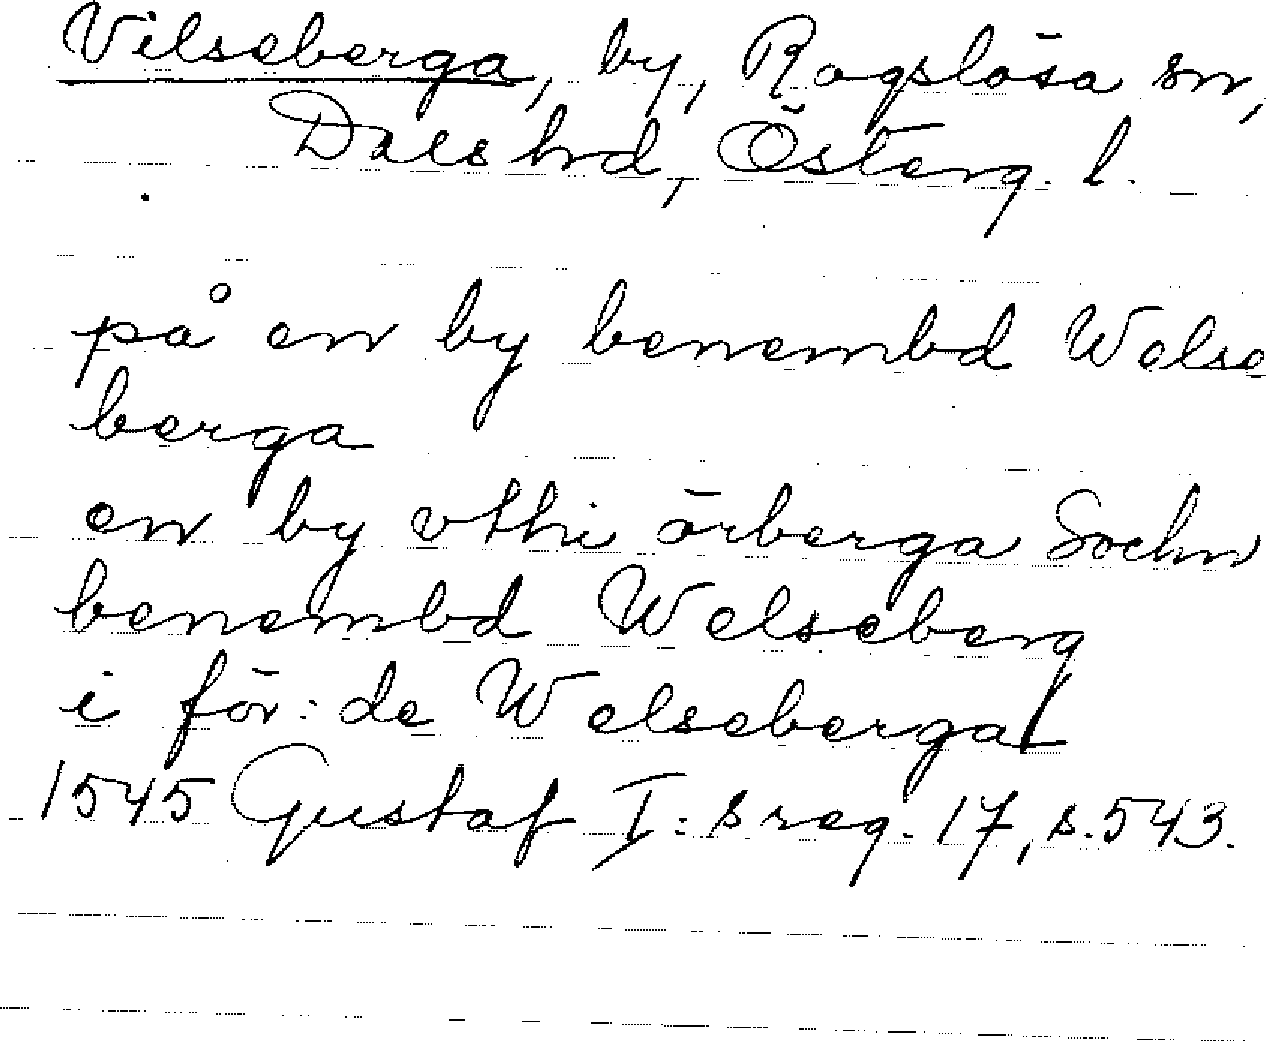 Vilseberga, by, Rogslösa sn,
Dals hrd, Österg. l.
på en by benembd Welse
berga
en by vthi örberga Sochn
benembd Welseberg
i för: de Welseberga
1545 Gustaf I: s reg. 17, s. 543.